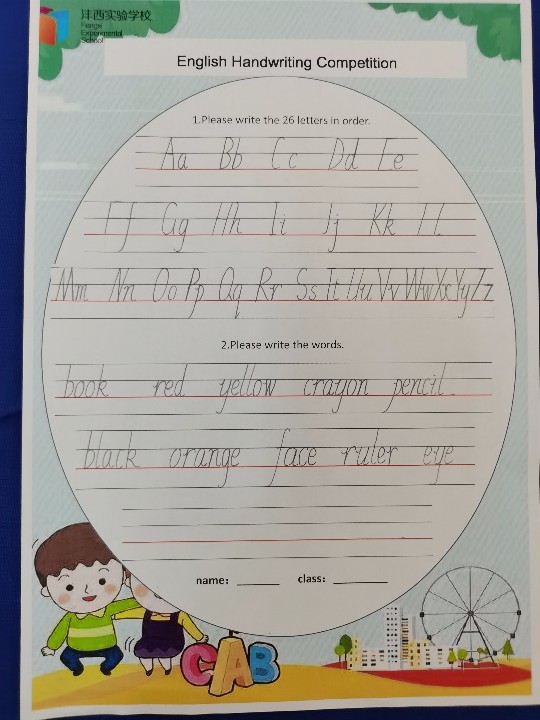 沣西实验学校
Fengxi
Experimental
School
English Handwriting Competition
1.Please write the 26 letters in order.
Aa Bb Cc Dd Ee
Ff Gg Hh Ii Jj Kk Ll
Mm Nn Oo Pp Qq Rr Ss Tt Uu Vv Ww Xx Yy Zz
2.Please write the words.
book red yellow crayon pencil
black orange face ruler eye
name: class:
CAB